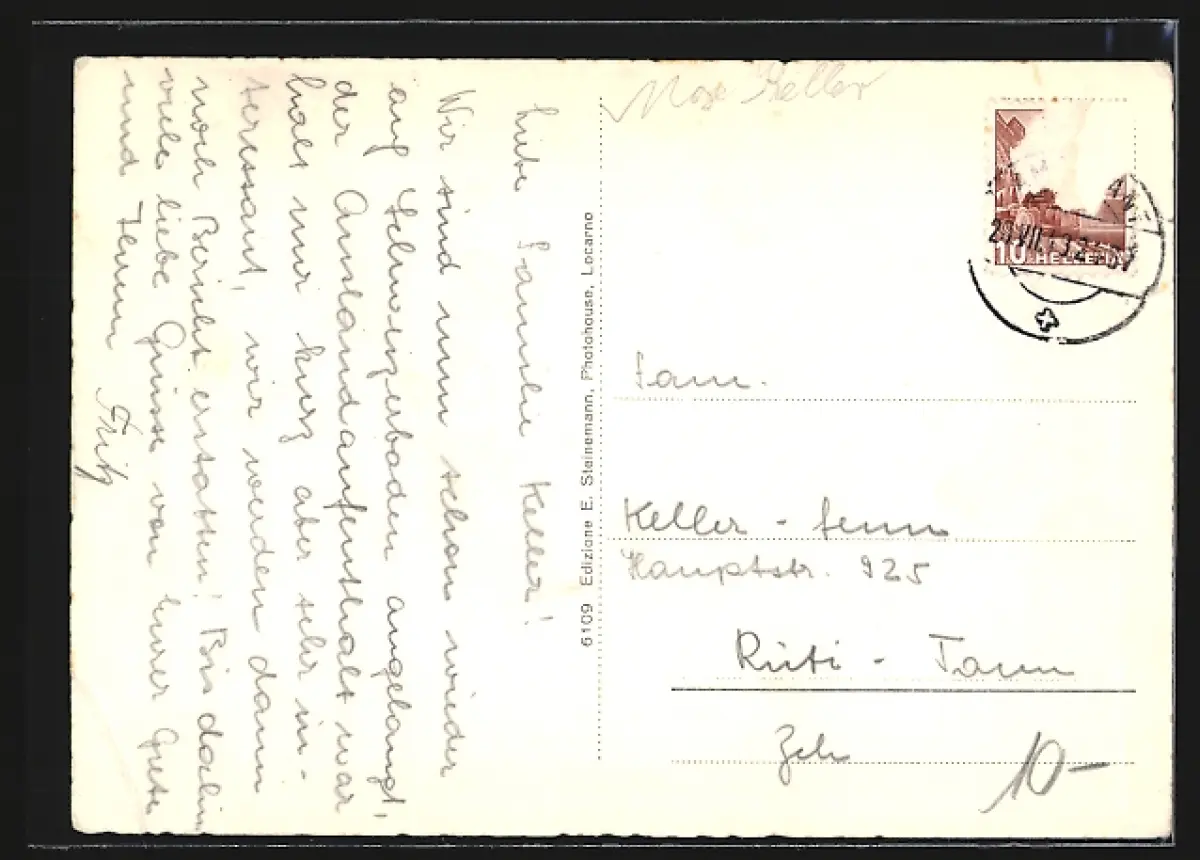 Liebe Familie Keller!
Wir sind nun schon wieder
auf Schweizerboden angelangt,
der Auslandaufenthalt war
halt nur kurz aber sehr in-
teressant, wir werden dann
noch Bericht erstatten! Bis dahin
viele liebe Grüsse von Eurer Grete
und Fritz
6109 Edizione E. Steinemann, Photohouse, Locarno
Keller
10 HELVETIA
Fam.
Keller - Jenny
Hauptstr. 925
Rüti - Tann
Zch
10-